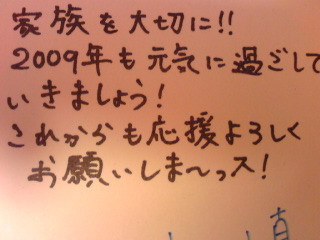 家族を大切に!!
2009年も元気に過ごして
いきましょう!
これからも応援よろしく
お願いしま〜っス!